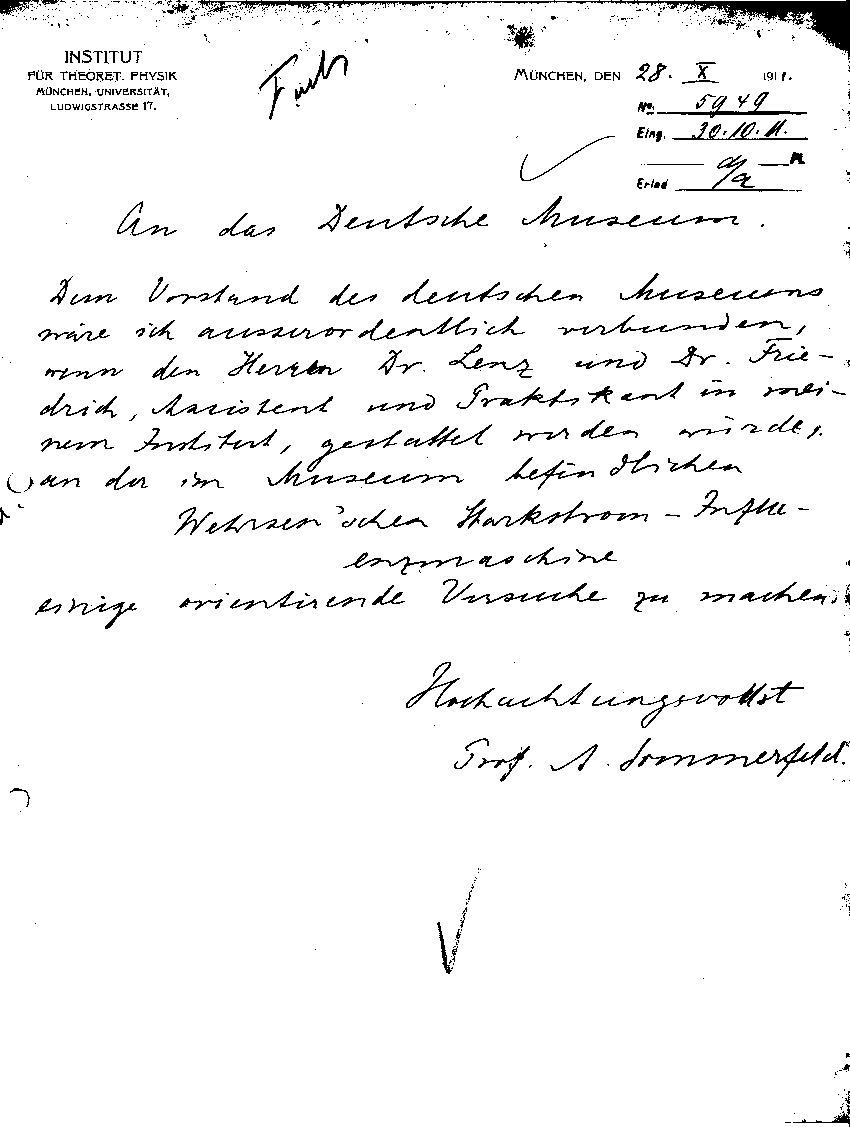 INSTITUT
FÜR THEORET. PHYSIK
MÜNCHEN, UNIVERSITÄT,
LUDWIGSTRASSE 17.
MÜNCHEN, DEN 28. X 1911.
No. 5949
Eing. 30.10.11.
Erled
An das Deutsche Museum.
Dem Vorstand des deutschen Museums
wäre ich ausserordentlich verbunden,
wenn den Herren Dr. Lenz und Dr. Frie-
drich, Assistent und Praktikant in mei-
nem Institut, gestattet werden würde,
an der im Museum befindlichen
Wehrsen'schen Starkstrom-Influ-
enzmaschine
einige orientirende Versuche zu machen.
Hochachtungsvollst
Prof. A. Sommerfeld.